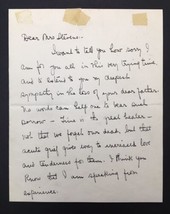 Dear Mrs Stevens
I want to tell you how sorry I
am for you all in this very trying time,
and to extend to you my deepest
sympathy in the loss of your dear father.
No words can help one to bear such
sorrow - Time is the great healer -
not that we forget our dead, but that
acute grief gives way to increased love
and tenderness for them. I think you
know that I am speaking from
experience.